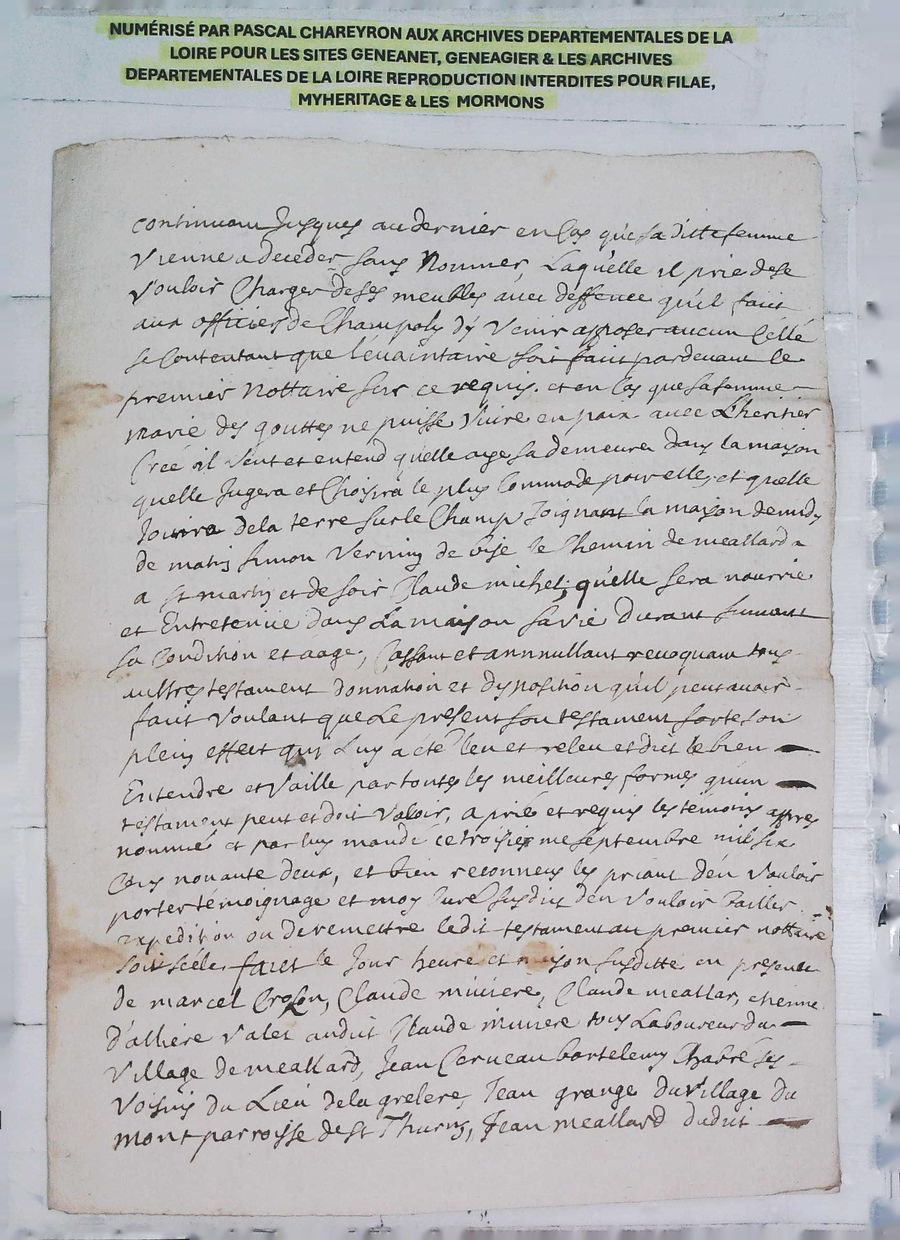 NUMÉRISÉ PAR PASCAL CHAREYRON AUX ARCHIVES DEPARTEMENTALES DE LA
LOIRE POUR LES SITES GENEANET, GENEAGIER & LES ARCHIVES
DEPARTEMENTALES DE LA LOIRE REPRODUCTION INTERDITES POUR FILAE,
MYHERITAGE & LES MORMONS
continuant Jusques au dernier en Cas que sa ditte femme
Vienne a deceder sans Nommer, Laquelle il prie de se
Vouloir Charger de ses meubles avec deffence qu'il fait
aux officiers de Champoly d'y Venir apposer aucun Cellé
se Contentant que l'évaintaire soit fait pardevant le
premier Nottaire sur ce requis. et en Cas que sa femme
marie des gouttes ne puisse Vivre en paix avec L'heritier
Creé il Veut et entend qu'elle aye sa demeure dans la maison
quelle Jugera et Choisira le plus Commode pour elle, et quelle
Jouira de la terre sur le Champ Joignant la maison de midy
de matin simon Verniny de bise le Chemin de meallard
a st martin et de soir Claude michel, qu'elle sera nourrie
et Entretenüe dans La maison sa vie durant suivant
sa Condition et aage, Cassant et annnullant revoquant tous
aultres testament donnation et disposition qu'il peut avoir
fait Voulant que Le present son testament sorte son
plein effect qui Luy a été leu et releu et dict le bien
Entendre et Vaille par toutes les meilleures formes qu'un
testament peut et doit Valoir, a prié et requis les témoins appres
nommés et par luy mandé ce troisieme septembre mil six
Cens nonante deux, et bien reconneus les priant d'en Vouloir
porter témoignage et moy Curé susdit d'en Vouloir tailler
expedition ou de remettre ledit testament au premier nottaire
soit scélé. faict le Jour heure et maison susditte en presence
de marcel Croson, Claude miviere, Claude meallar, etienne
d'alliere Valet audit Claude miviere tous Laboureur du
Village de meallard, Jean Cerveau bartelemy Chabré ses
Voisins du Lieu de la grelere, Jean grange du village du
mont parroisse de st Thurin, Jean meallard dudit